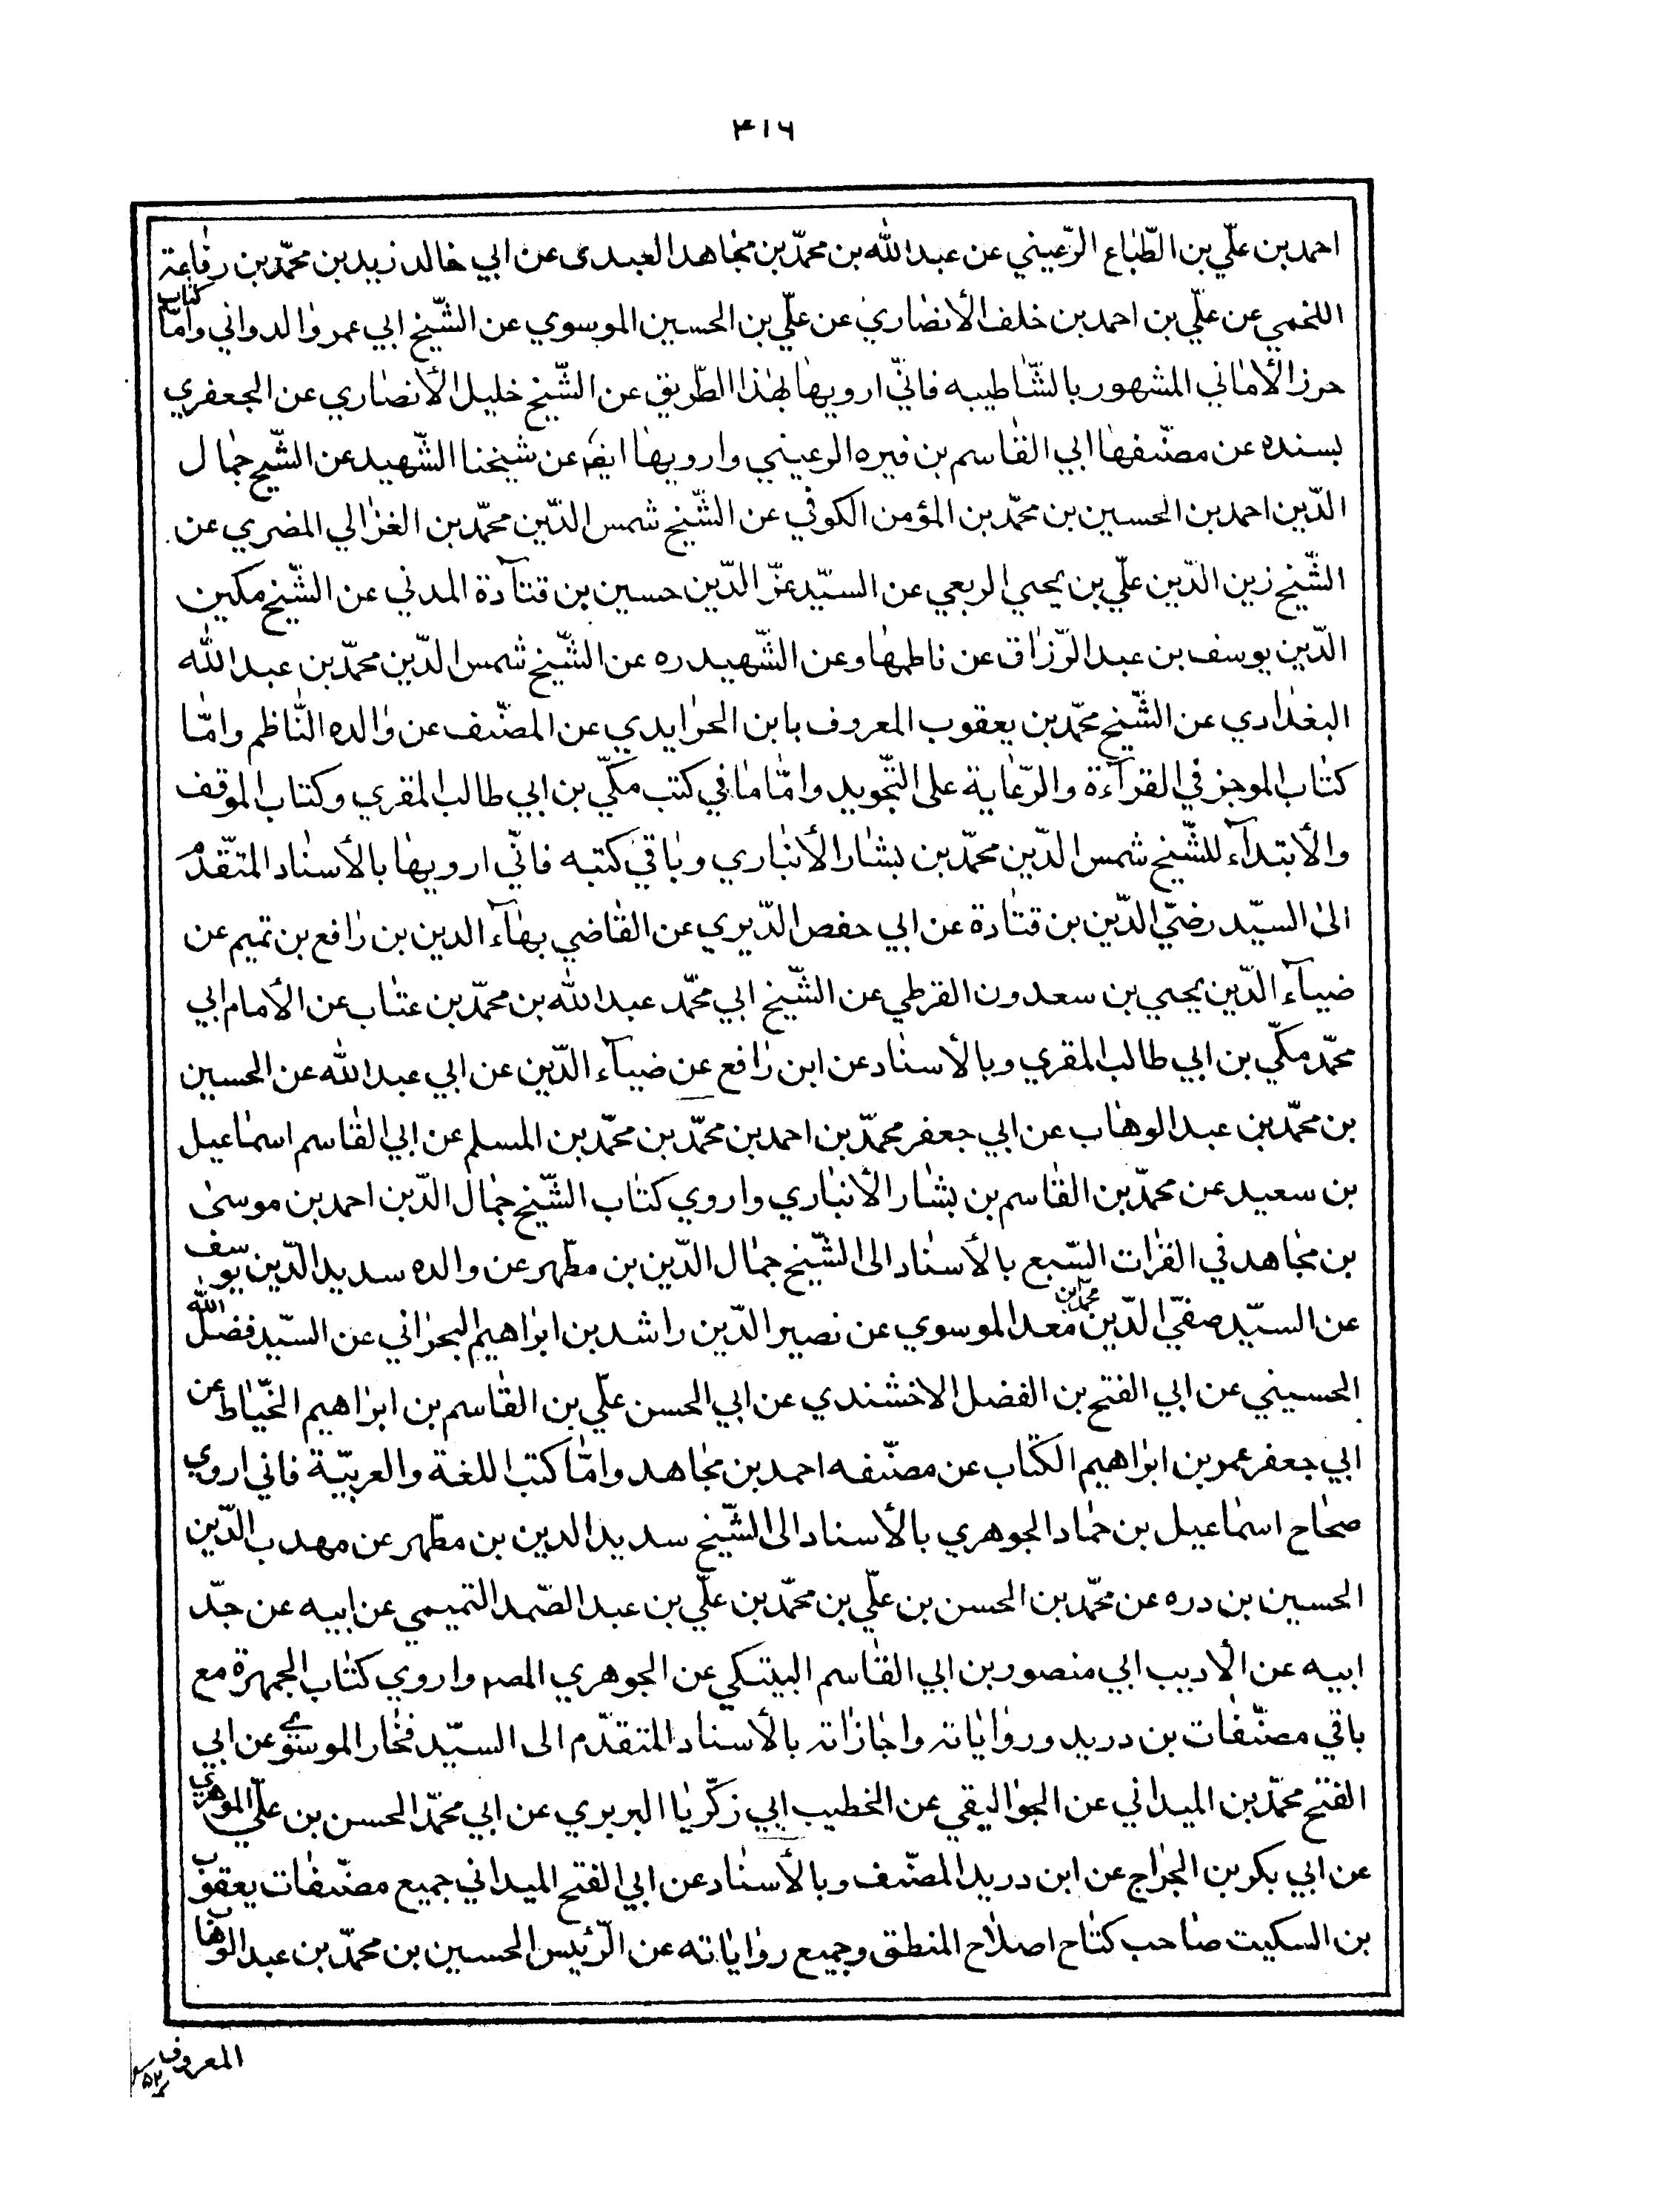 ۴۱۶
احمد بن علّي بن الطّباع الرّعيني عن عبد الله بن محمّد بن مجاهد العبدى عن ابي خالد زيد بن محمّد بن رفاعة
اللخمي عن علّي بن احمد بن خلف الأنصاري عن علّي بن الحسين الموسوي عن الشّيخ ابي عمرو الدواني وامّا كتاب
حرز الأماني المشهور بالشّاطيبه فانّي ارويها بهذا الطّريق عن الشّيخ خليل الأنصاري عن الجعفري
بسنده عن مصنّفها ابي القاسم بن فيره الرعيني وارويها ايضا عن شيخنا الشّهيد عن الشّيخ جمال
الدّين احمد بن الحسين بن محمّد بن المؤمن الكوفي عن الشّيخ شمس الدّين محمّد بن الغزالي المضري عن
الشّيخ زين الدّين علّي بن يحيى الربعي عن السيّد عزّ الدّين حسين بن قتآدة المدني عن الشّيخ مكين
الدّين يوسف بن عبد الرّزاق عن ناظمها وعن الشّهيد ره عن الشّيخ شمس الدّين محمّد بن عبد الله
البغدادي عن الشّيخ محمّد بن يعقوب المعروف بابن الحرايدي عن المصنّف عن والده النّاظم وامّا
كتاب الموجز في القرآءة والرّعاية على التّجويد وامّا ما في كتب مكّي بن ابي طالب المقري وكتاب الموقف
والأبتدآء للشّيخ شمس الدّين محمّد بن بشار الأنباري وباقي كتبه فانّي ارويها بالأسناد المتقّدم
الى السيّد رضيّ الدّين بن قتادة عن ابي حفص الدّيري عن القاضي بهآء الدين بن رافع بن تميم عن
ضيآء الدّين يحيى بن سعدون القرطي عن الشّيخ ابي محمّد عبد الله بن محمّد بن عتاب عن الأمام ابي
محمّد مكّي بن ابي طالب المقري وبالأسناد عن ابن رافع عن ضيآء الدّين عن ابي عبد الله عن الحسين
بن محمّد بن عبد الوهاب عن ابي جعفر محمّد بن احمد بن محمّد بن محمّد بن المسلم عن ابي القاسم اسماعيل
بن سعيد عن محمّد بن القاسم بن بشار الأنباري واروي كتاب الشّيخ جمال الدّين احمد بن موسى
بن مجاهد في القرات السّبع بالأسناد الى الشّيخ جمال الدّين بن مطّهر عن والده سديد الدّين يوسف
عن السيّد صفيّ الدّين محمّد بن معد الموسوي عن نصير الدّين راشد بن ابراهيم البحراني عن السيّد فضل الله
الحسيني عن ابي الفتح بن الفضل الاخشندي عن ابي الحسن علّي بن القاسم بن ابراهيم الخيّاط عن
ابي جعفر عمر بن ابراهيم الكتّاب عن مصنّفه احمد بن مجاهد وامّا كتب اللغة والعربيّة فاني اروي
صحاح اسماعيل بن حماد الجوهري بالأسناد الى الشّيخ سديد الدين بن مطّهر عن مهدب الدّين
الحسين بن دره عن محمّد بن الحسن بن علّي بن محمّد بن علّي بن عبد الصّمد التميمي عن ابيه عن جدّ
ابيه عن الأديب ابي منصور بن ابي القاسم البيتكي عن الجوهري المصـ واروي كتاب الجمهرة مع
باقي مصنّفات بن دريد ورواياته واجازاته بالأسناد المتقدّم الى السيّد فخار الموسوي عن ابي
الفتح محمّد بن الميداني عن الجواليقي عن الخطيب ابي زكّريا البربري عن ابي محمّد الحسن بن علّي
عن ابي بكر بن الجراج عن ابن دريد المصنّف وبالأسناد عن ابي الفتح الميداني جميع مصنّفات يعقوب
بن السكيت صاحب كتاح اصلاح المنطق وجميع رواياته عن الرّئيس الحسين بن محمّد بن عبد الوهاب
المعروف